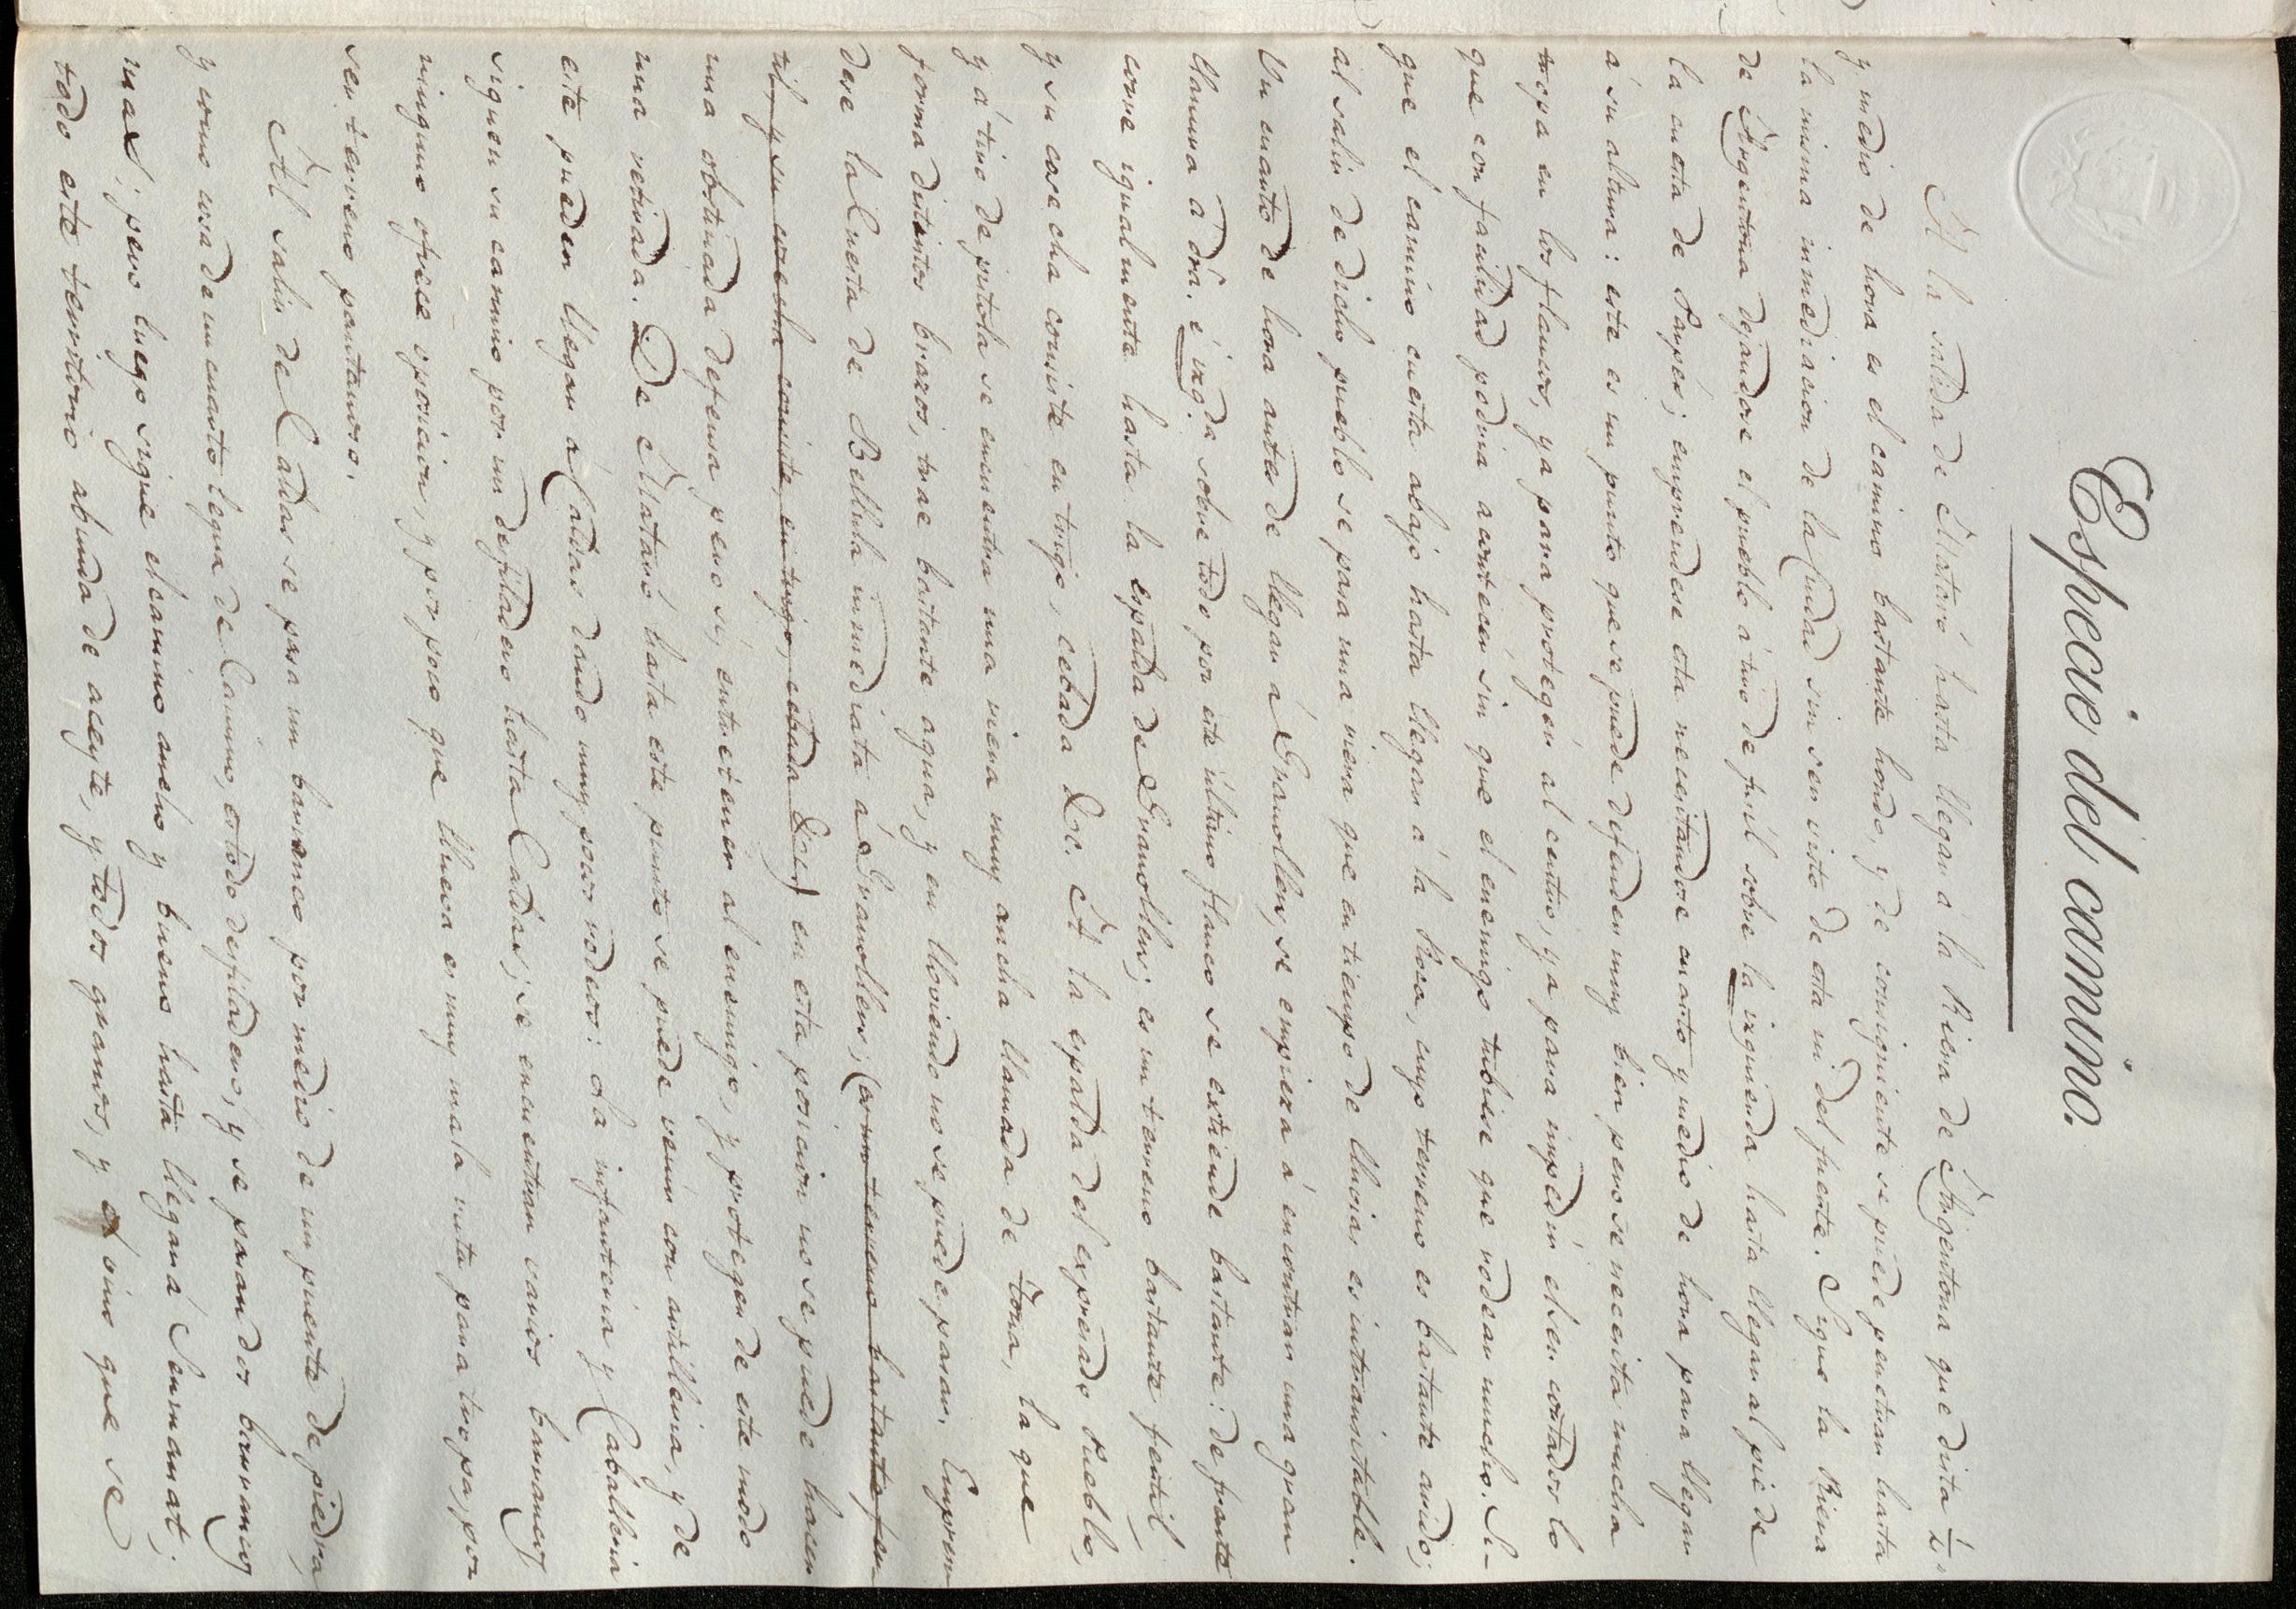 Especie del camino.
A la salida de Mataró hasta llegar á la Riera de Argentona que dista ½
y medio de hora es el camino bastante hondo, y de consiguiente se puede penetrar hasta
la misma inmediacion de la Ciudad sin ser visto de ota ni del fuerte. Sigue la Riera
de Argentona dejandose el pueblo á tiro de fusil sobre la izquierda hasta llegar al pie de
la cuesta de Parpés; emprendese ota necesitandose cuarto y medio de hora para llegar
á su altura: este es un punto que se puede defender muy bien pero se necesita mucha
tropa en los flancos, ya para protegér al centro, ya para impedir el ser cortados lo
que con facilidad podria acontecér sin que el enemigo tubiese que rodear mucho. Si-
gue el camino cuesta abajo hasta llegar á la Roca, cuyo terreno es bastante arido;
al salir de dicho pueblo se pasa una riera que en tiempo de lluvias es intransitable.
Un cuarto de hora antes de llegar á Granollers, se empieza á encontrar una gran
llanura á dra. é izqda. sobre todo por este ultimo flanco se extiende bastante: de frente
corre igualmente hasta la espalda de Granollers; es un terreno bastante fertil
y su cosecha consiste en trigo, cebada &c. A la espalda del expresado Pueblo,
y á tiro de pistola se encuentra una riera muy ancha llamada de Tona, la que
forma distintos brazos, trae bastante agua, y en lloviendo no se puede pasar. Empren-
dese la Cuesta de Bellula inmediata á Granollers; (es un terreno bastante fer-
til, y su cosecha consiste en trigo, cebada &c.) en esta posicion no se puede hacer
una obstinada defensa pero si, entretener al enemigo, y proteger de este modo
una retirada. De Mataró hasta este punto se puede venir con artilleria, y de
este pueden llegar á Caldas dando muy pocos rodeos: ota infanteria y Caballeria
siguen su camino por un desfiladero hasta Caldas; se encuentran varios barrancos
ninguno ofrece oposicion, y por poco que llueva es muy mala ruta para tropa, por
ser terreno pantanoso.
Al salir de Caldas se pasa un barranco por medio de un puente de piedra,
y como cosa de un cuarto legua de Camino, es todo desfiladero, y se pasan dos barrancos
mas; pero luego sigue el camino ancho y bueno hasta llegar á Senmanat;
todo este territorio abunda de aceyte, y todos granos, y el vino que se